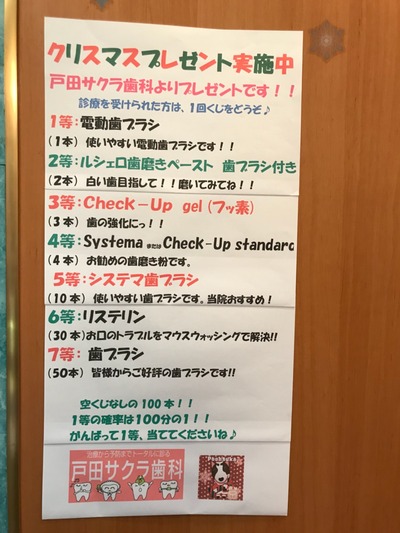 クリスマスプレゼント実施中
戸田サクラ歯科よりプレゼントです！！
診療を受けられた方は、1回くじをどうぞ♪
1等：電動歯ブラシ
(1本) 使いやすい電動歯ブラシです！！
2等：ルシェロ歯磨きペースト 歯ブラシ付き
(2本) 白い歯目指して！！磨いてみてね！！
3等：Check-Up gel (フッ素)
(3本) 歯の強化にっ！！
4等：Systema または Check-Up standard
(4本) お勧めの歯磨き粉です。
5等：システマ歯ブラシ
(10本) 使いやすい歯ブラシです。当院おすすめ！
6等：リステリン
(30本) お口のトラブルをマウスウォッシングで解決!!
7等：歯ブラシ
(50本) 皆様からご好評の歯ブラシです!!
空くじなしの100本！！
1等の確率は100分の1！！
がんばって1等、当ててくださいね♪
治療から予防までトータルに診る
戸田サクラ歯科